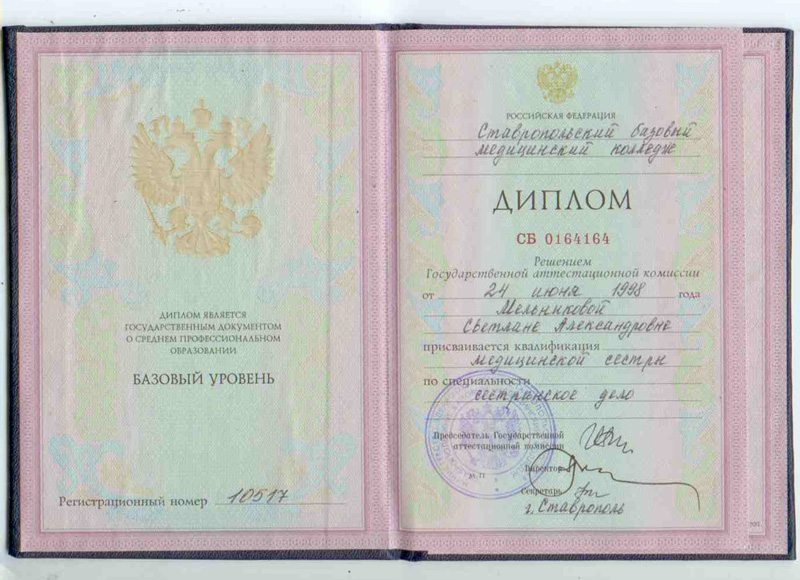 ДИПЛОМ ЯВЛЯЕТСЯ
ГОСУДАРСТВЕННЫМ ДОКУМЕНТОМ
О СРЕДНЕМ ПРОФЕССИОНАЛЬНОМ
ОБРАЗОВАНИИ
БАЗОВЫЙ УРОВЕНЬ
Регистрационный номер 10517
РОССИЙСКАЯ ФЕДЕРАЦИЯ
Ставропольский базовый
медицинский колледж
ДИПЛОМ
СБ 0164164
Решением
Государственной аттестационной комиссии
от 24 июня 1998 года
Мельниковой
Светлане Александровне
присваивается квалификация
медицинской сестры
по специальности
сестринское дело
Председатель Государственной
аттестационной комиссии
Директор
М.П.
Секретарь
г. Ставрополь